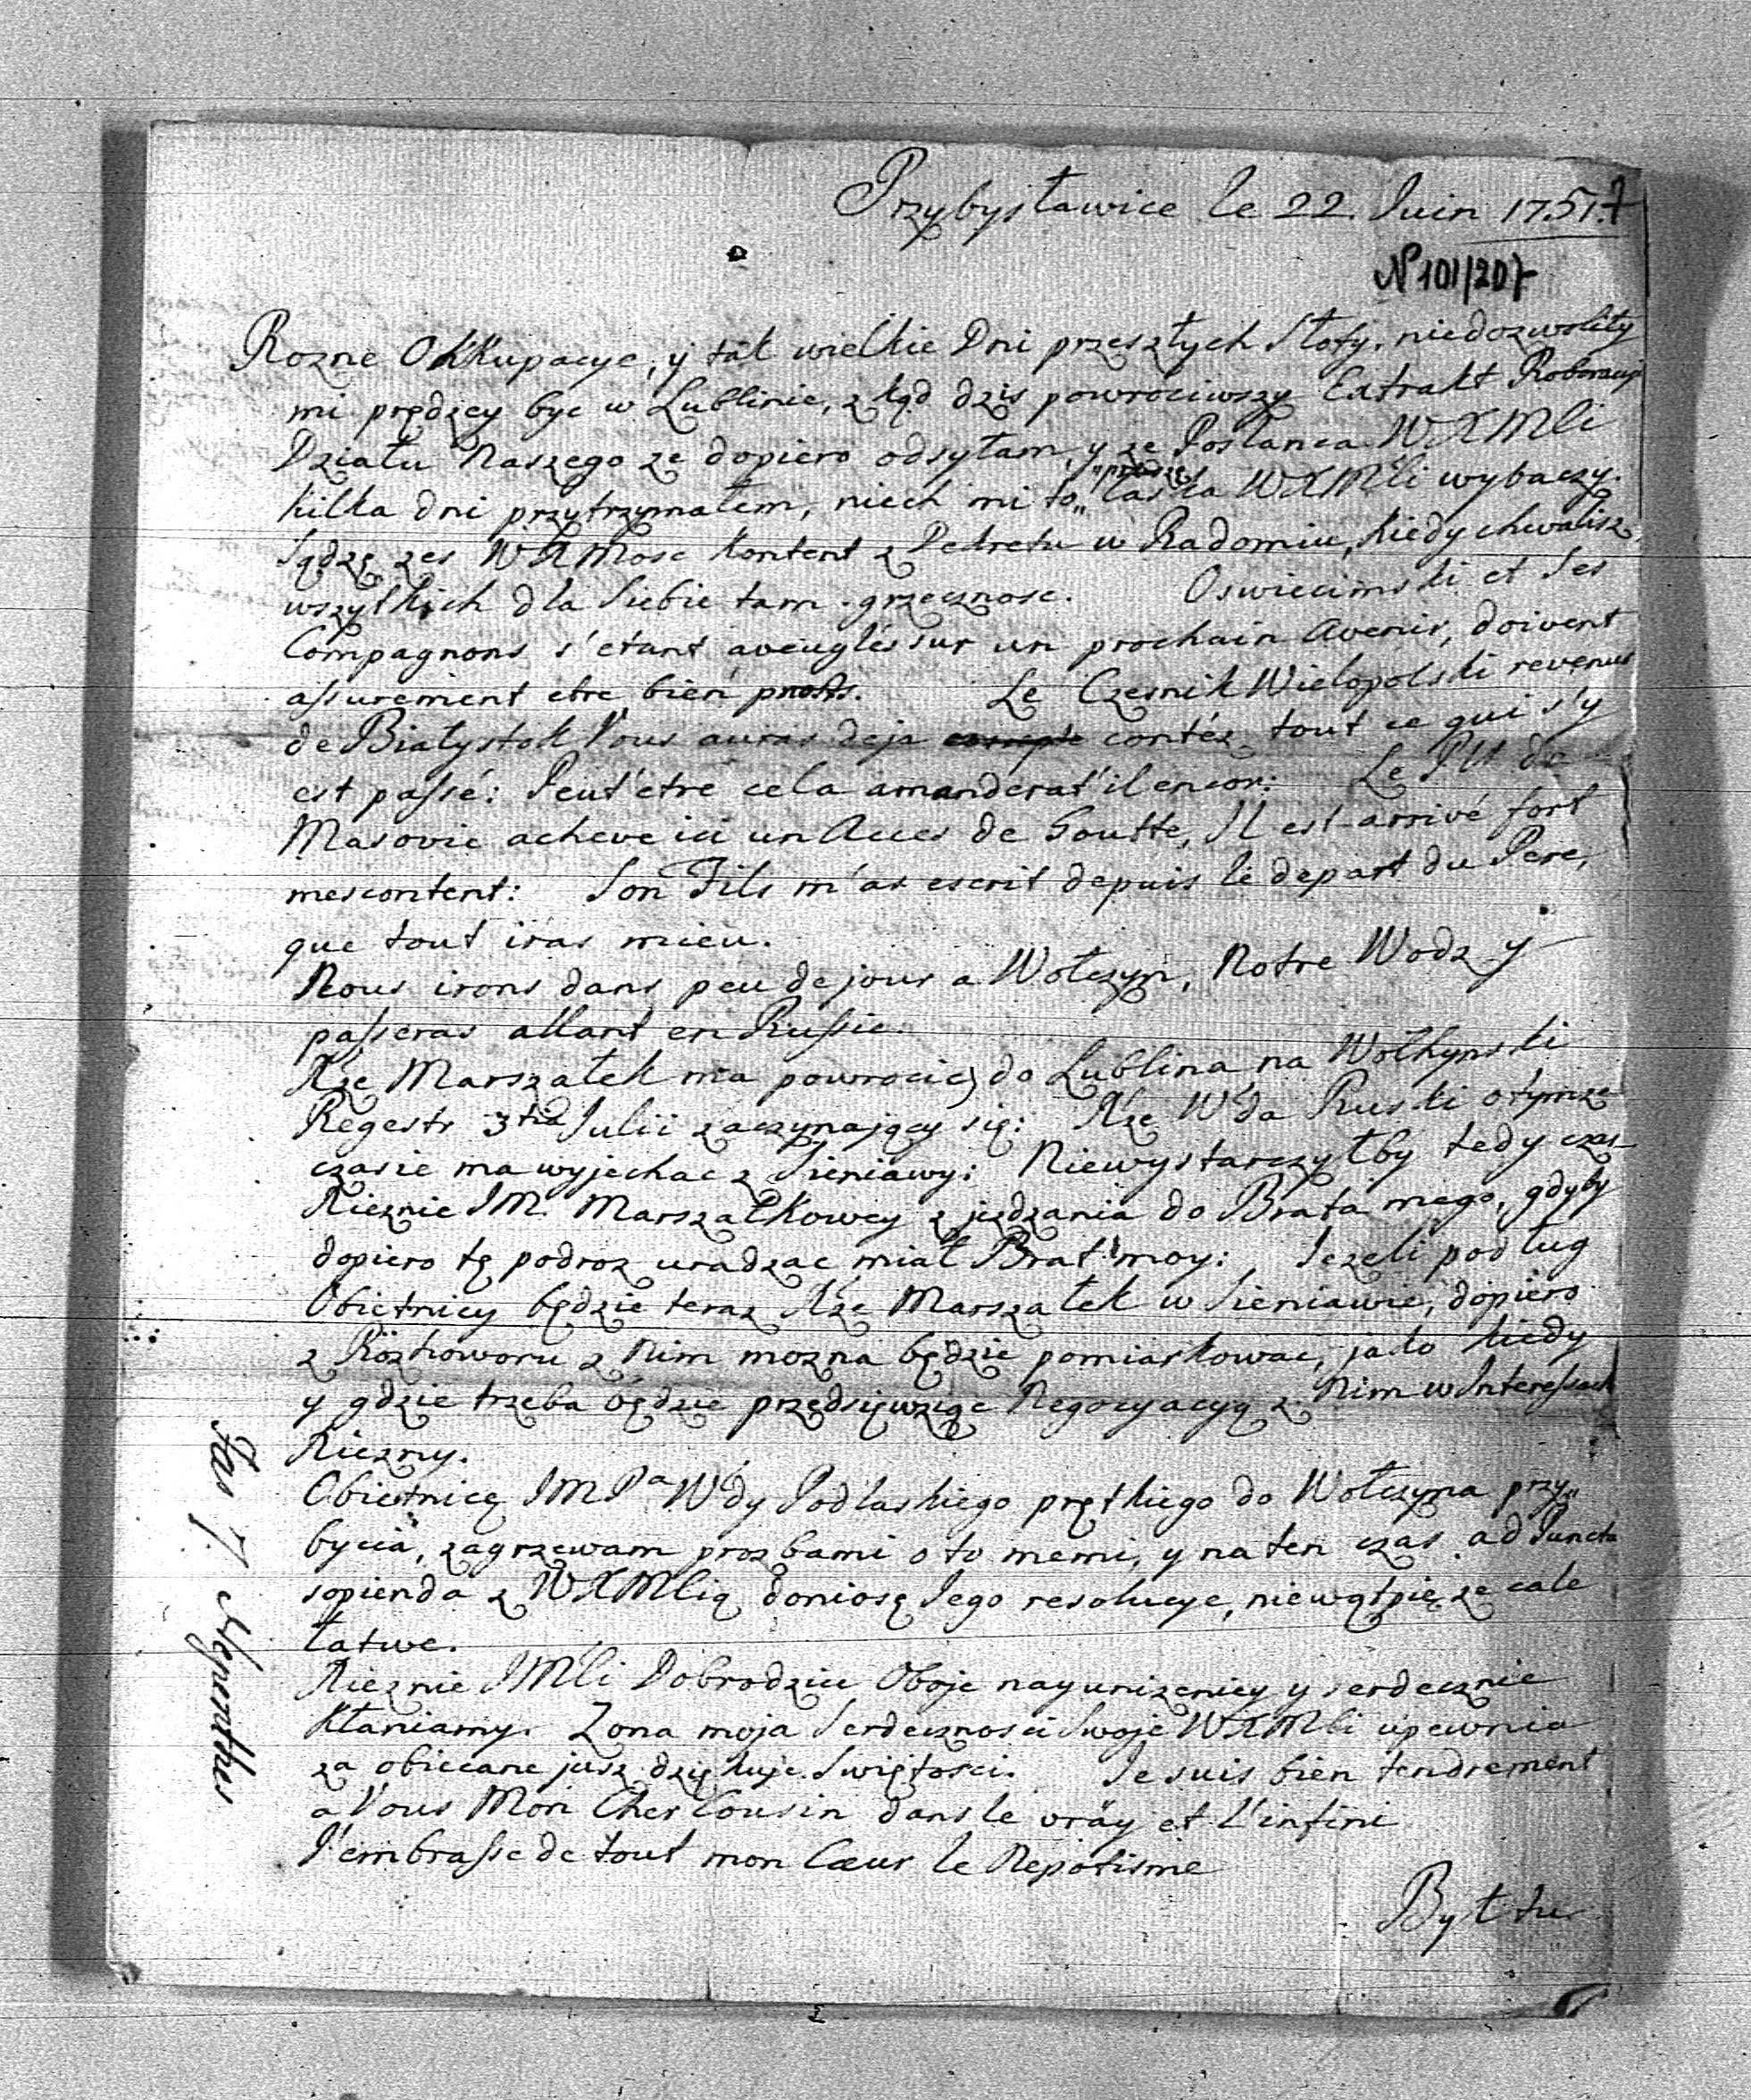 Przybysławice le 22. Juin 1751.
N 101/207
Rozne Okkupacye, y tak wielkie Dni przeszłych Słoty, niedozwoliły
mi prędzey byc w Lublinie, z kąd dzis powrociwszy Extrakt Roboracyi
Działu Naszego ze dopiero odsyłam, y ze Posłanca WXMli
kilka dni przytrzymałem, niech mi to łaska WXMli wybaczy.
Sądzę zes WXMosc kontent z Dekretu w Radomiu, kiedy chwalisz
wszytkich dla Siebie tam grzecznosc. Oswiecimski et Ses
Compagnons s'etant aveuglés sur un prochain Avenir, doivent
assurement etre bien. Le Czesnik Wielopolski revenus
de Białystok Vous auras deja contéz tout ce qui s'y
est passé: Peut'etre cela amanderat'il encor: Le Pll de
Masovie acheve ici un Acces de Goutte, Il est arrivé fort
mescontent: Son Fils m'as escrit depuis le depart du Pere,
que tout iras mieu.
Nous irons dans peu de jours a Wołczyn, Notre Wodz y
passeras allant en Russie.
Xze Marszałek ma powrocic do Lublina na Wołhynski
Regestr 3tia Julii zaczynaiący się: Xze Wda Ruski o tymze
czasie ma wyjechac z Sieniawy: Niewystarczyłby tedy czas
Xieznie IM. Marszałkowey zjezdzania do Brata mego, gdyby
dopiero tę podroz uradzac miał Brat moy: Jezeli podług
Obietnicy będzie teraz Xze Marszałek w Sieniawie, dopiero
z Rozhoworu z Nim mozna będzie pomiarkowac, jako kiedy
y gdzie trzeba będzie przedsięwziąc Negocyacyą z Nim w Interessach
Xiezny.
Obietnicę IMPa Wdy Podlaskiego prętkiego do Wołczyna przy„
bycia, zagrzewam prozbami o to memi, y na ten czas ad Puncta
sopienda z WXMlią doniosę Jego resolucye, niewątpię ze cale
łatwe.
Xieznie IMli Dobrodzice Oboje nayunizeniey y serdecznie
Kłaniamy. Zona moja Serdecznosci Swoje WXMli upewnia
za obiecane jusz dziękuje Swiętosci. Je suis bien tendrement
a Vous Mon Cher Cousin dans le vray et L'infini
J'embrasse de tout mon Cœur le Nepotisme
Był tu